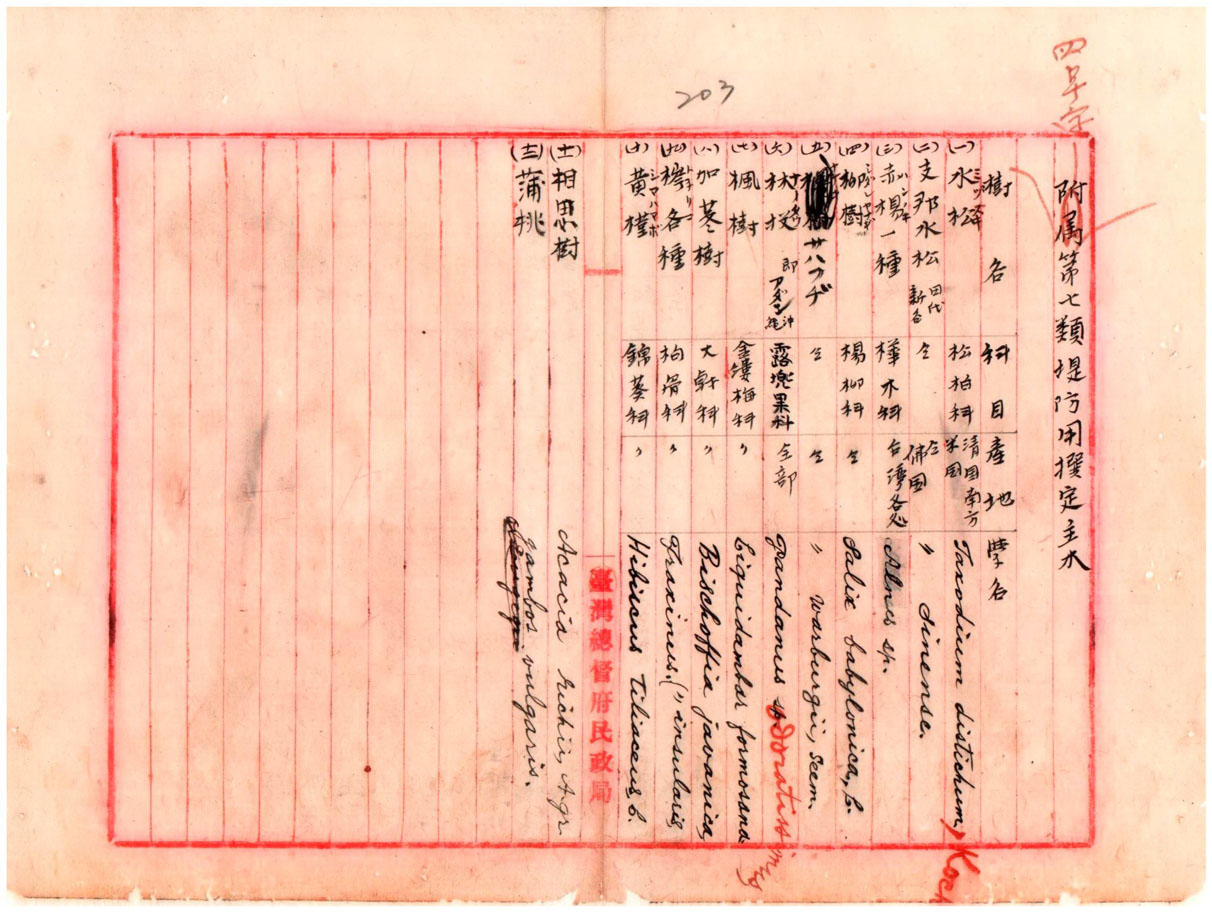 203
附属第七類堤防用撰定主木
樹名 科目 產地 學名
(一) 水松 松柏科 清国南方 米国 Taxodium distichum, Koch
(二) 支那水松 田代新名 仝 仝 〃 sinense.
(三) 赤楊一種 樺木科 台湾各 Alnus sp.
(四) 柳樹 楊柳科 仝 Salix babylonica, L.
(五) サハフヂ 仝 仝 〃 Warburgii, Seem.
(六) 林投 即アダン 沖縄 露兜果科 全部 Pandanus sp. odoratissimus
(七) 楓樹 金鏤梅科 〃 Liquidambar formosana
(八) 加苳樹 大戟科 〃 Bischoffia javanica,
(九) 梣各種 トネリコ 枸骨科 〃 Fraxinus. (〃 insularis,
(十) 黃槿 シマハマボ 錦葵科 〃 Hibiscus Tiliaceus, L.
臺灣總督府民政局
(十一) 相思樹 Acacia Richii, A. gr.
(十二) 蒲桃 Jambos vulgaris.